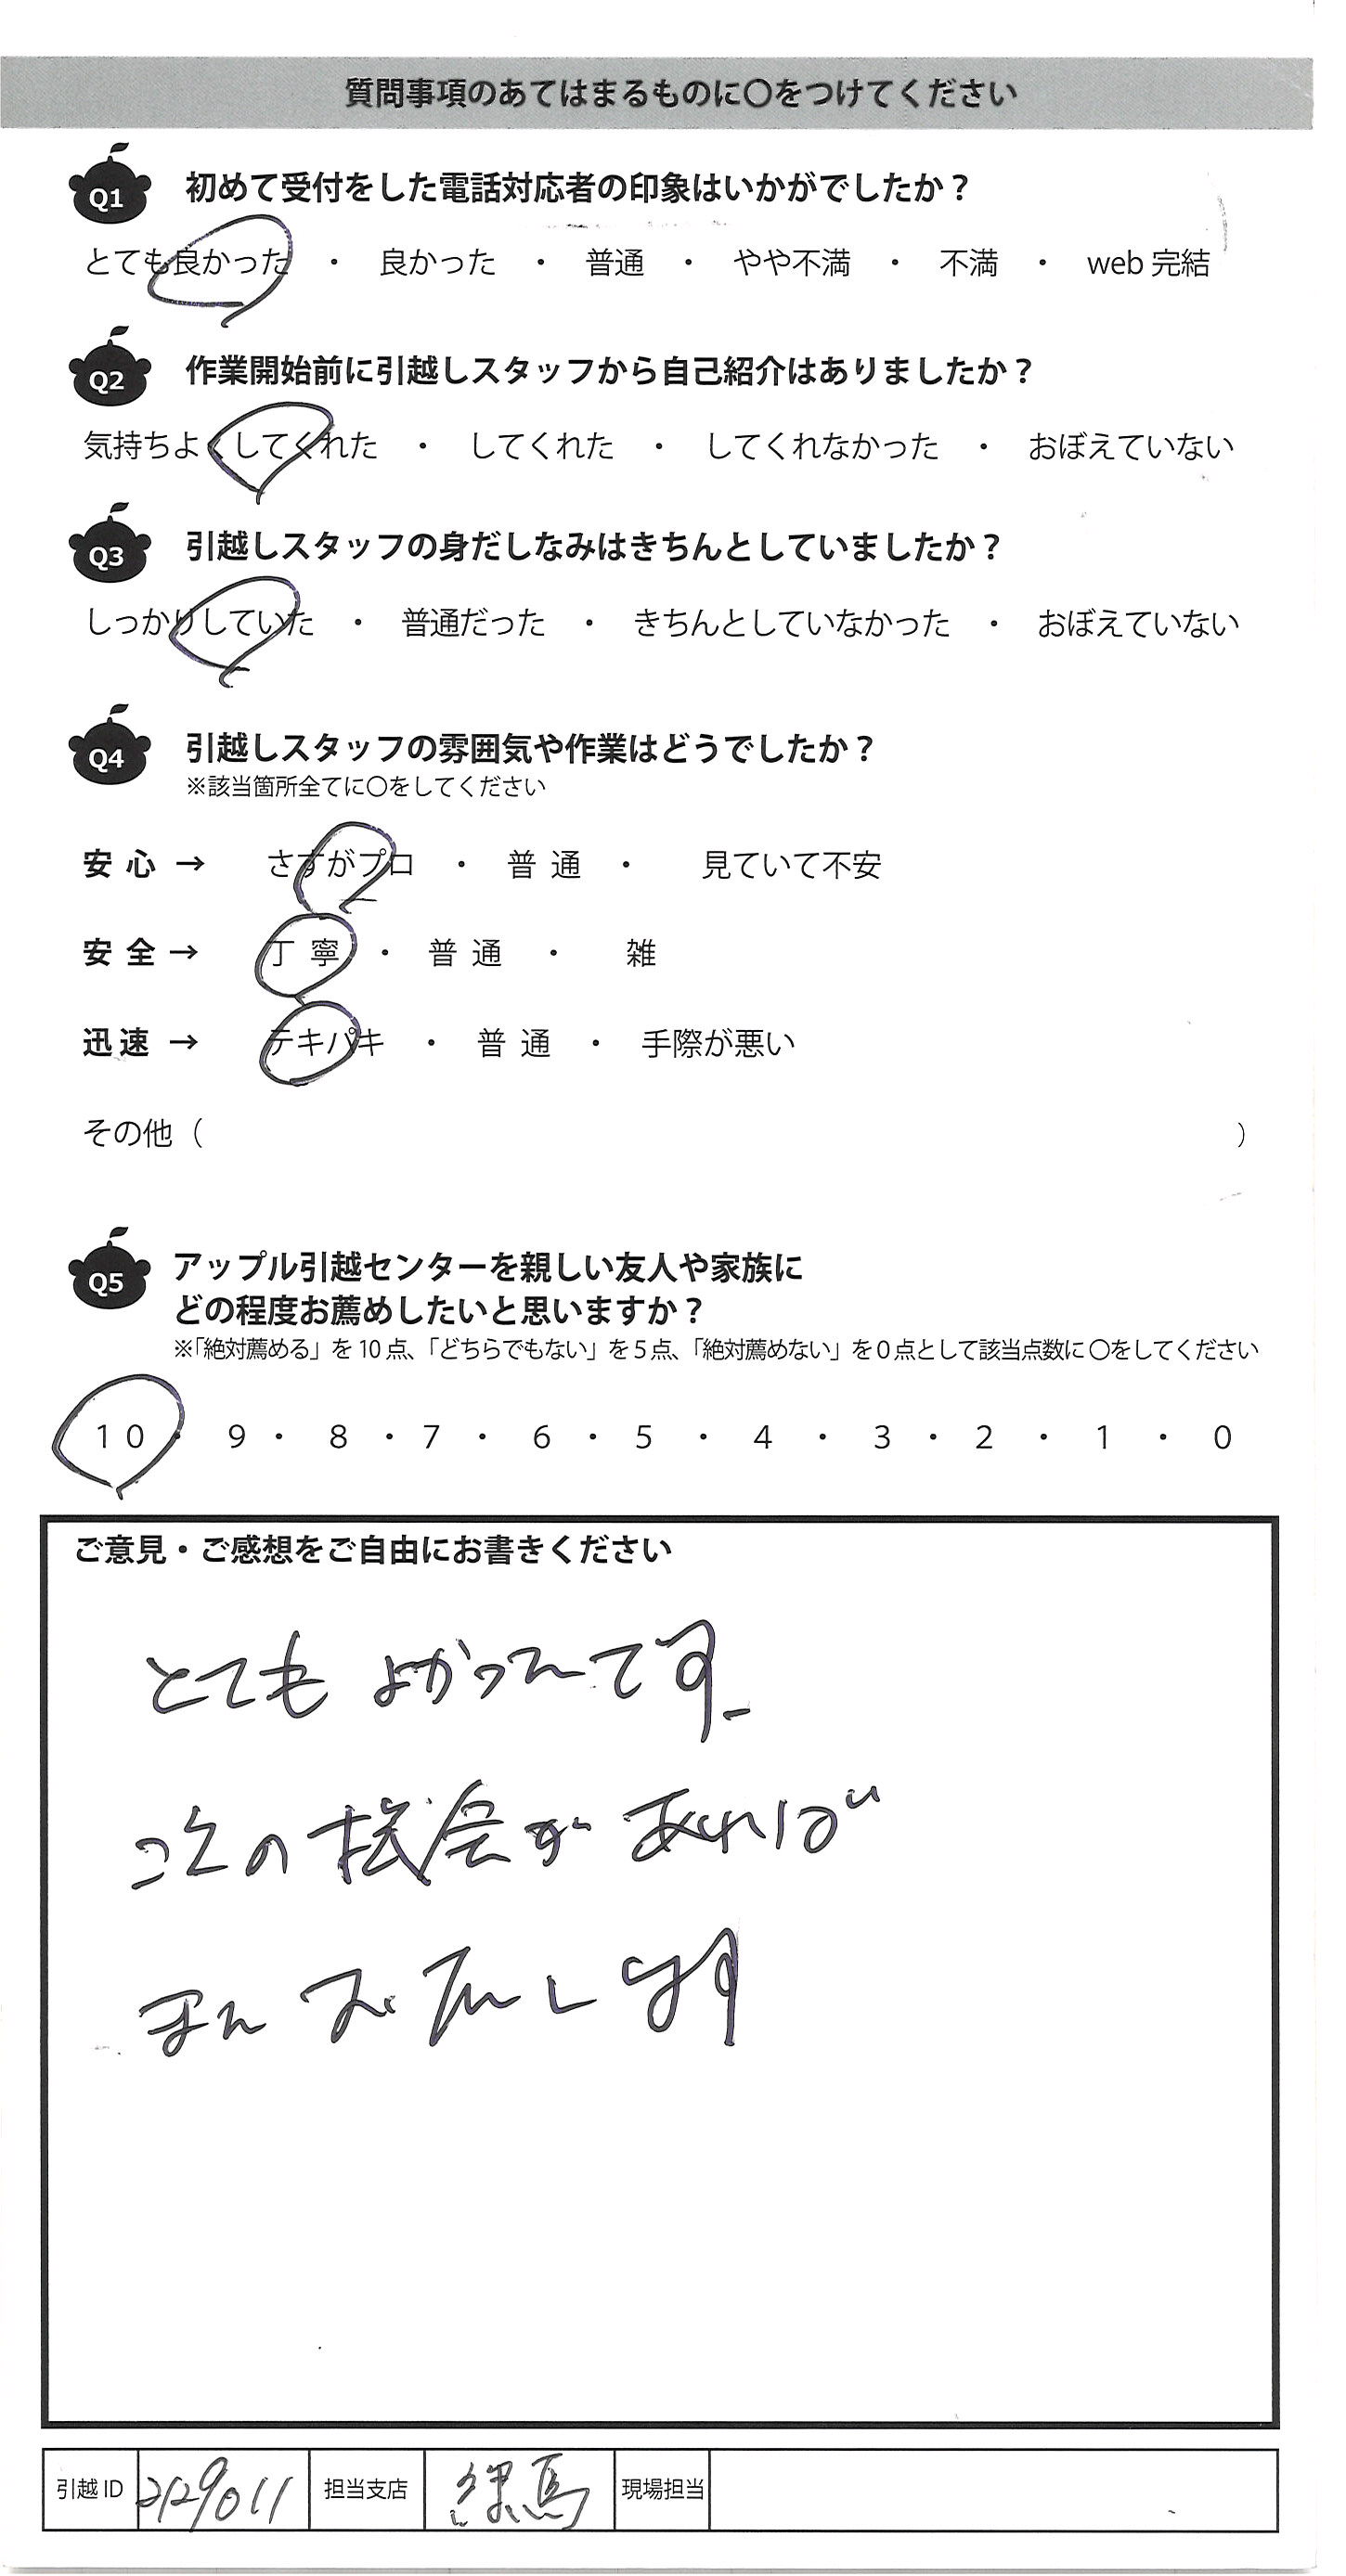 質問事項のあてはまるものに〇をつけてください
Q1 初めて受付をした電話対応者の印象はいかがでしたか？
とても良かった ・ 良かった ・ 普通 ・ やや不満 ・ 不満 ・ web 完結
Q2 作業開始前に引越しスタッフから自己紹介はありましたか？
気持ちよくしてくれた ・ してくれた ・ してくれなかった ・ おぼえていない
Q3 引越しスタッフの身だしなみはきちんとしていましたか？
しっかりしていた ・ 普通だった ・ きちんとしていなかった ・ おぼえていない
Q4 引越しスタッフの雰囲気や作業はどうでしたか？
※該当箇所全てに〇をしてください
安心 → さすがプロ ・ 普通 ・ 見ていて不安
安全 → 丁寧 ・ 普通 ・ 雑
迅速 → テキパキ ・ 普通 ・ 手際が悪い
その他（ ）
Q5 アップル引越センターを親しい友人や家族に
どの程度お薦めしたいと思いますか？
※「絶対薦める」を 10 点、「どちらでもない」を 5 点、「絶対薦めない」を 0 点として該当点数に〇をしてください
10 ・ 9 ・ 8 ・ 7 ・ 6 ・ 5 ・ 4 ・ 3 ・ 2 ・ 1 ・ 0
ご意見・ご感想をご自由にお書きください
とても よかったです。
次の機会が あれば
また お願いします
引越 ID 2129011 担当支店 練馬 現場担当